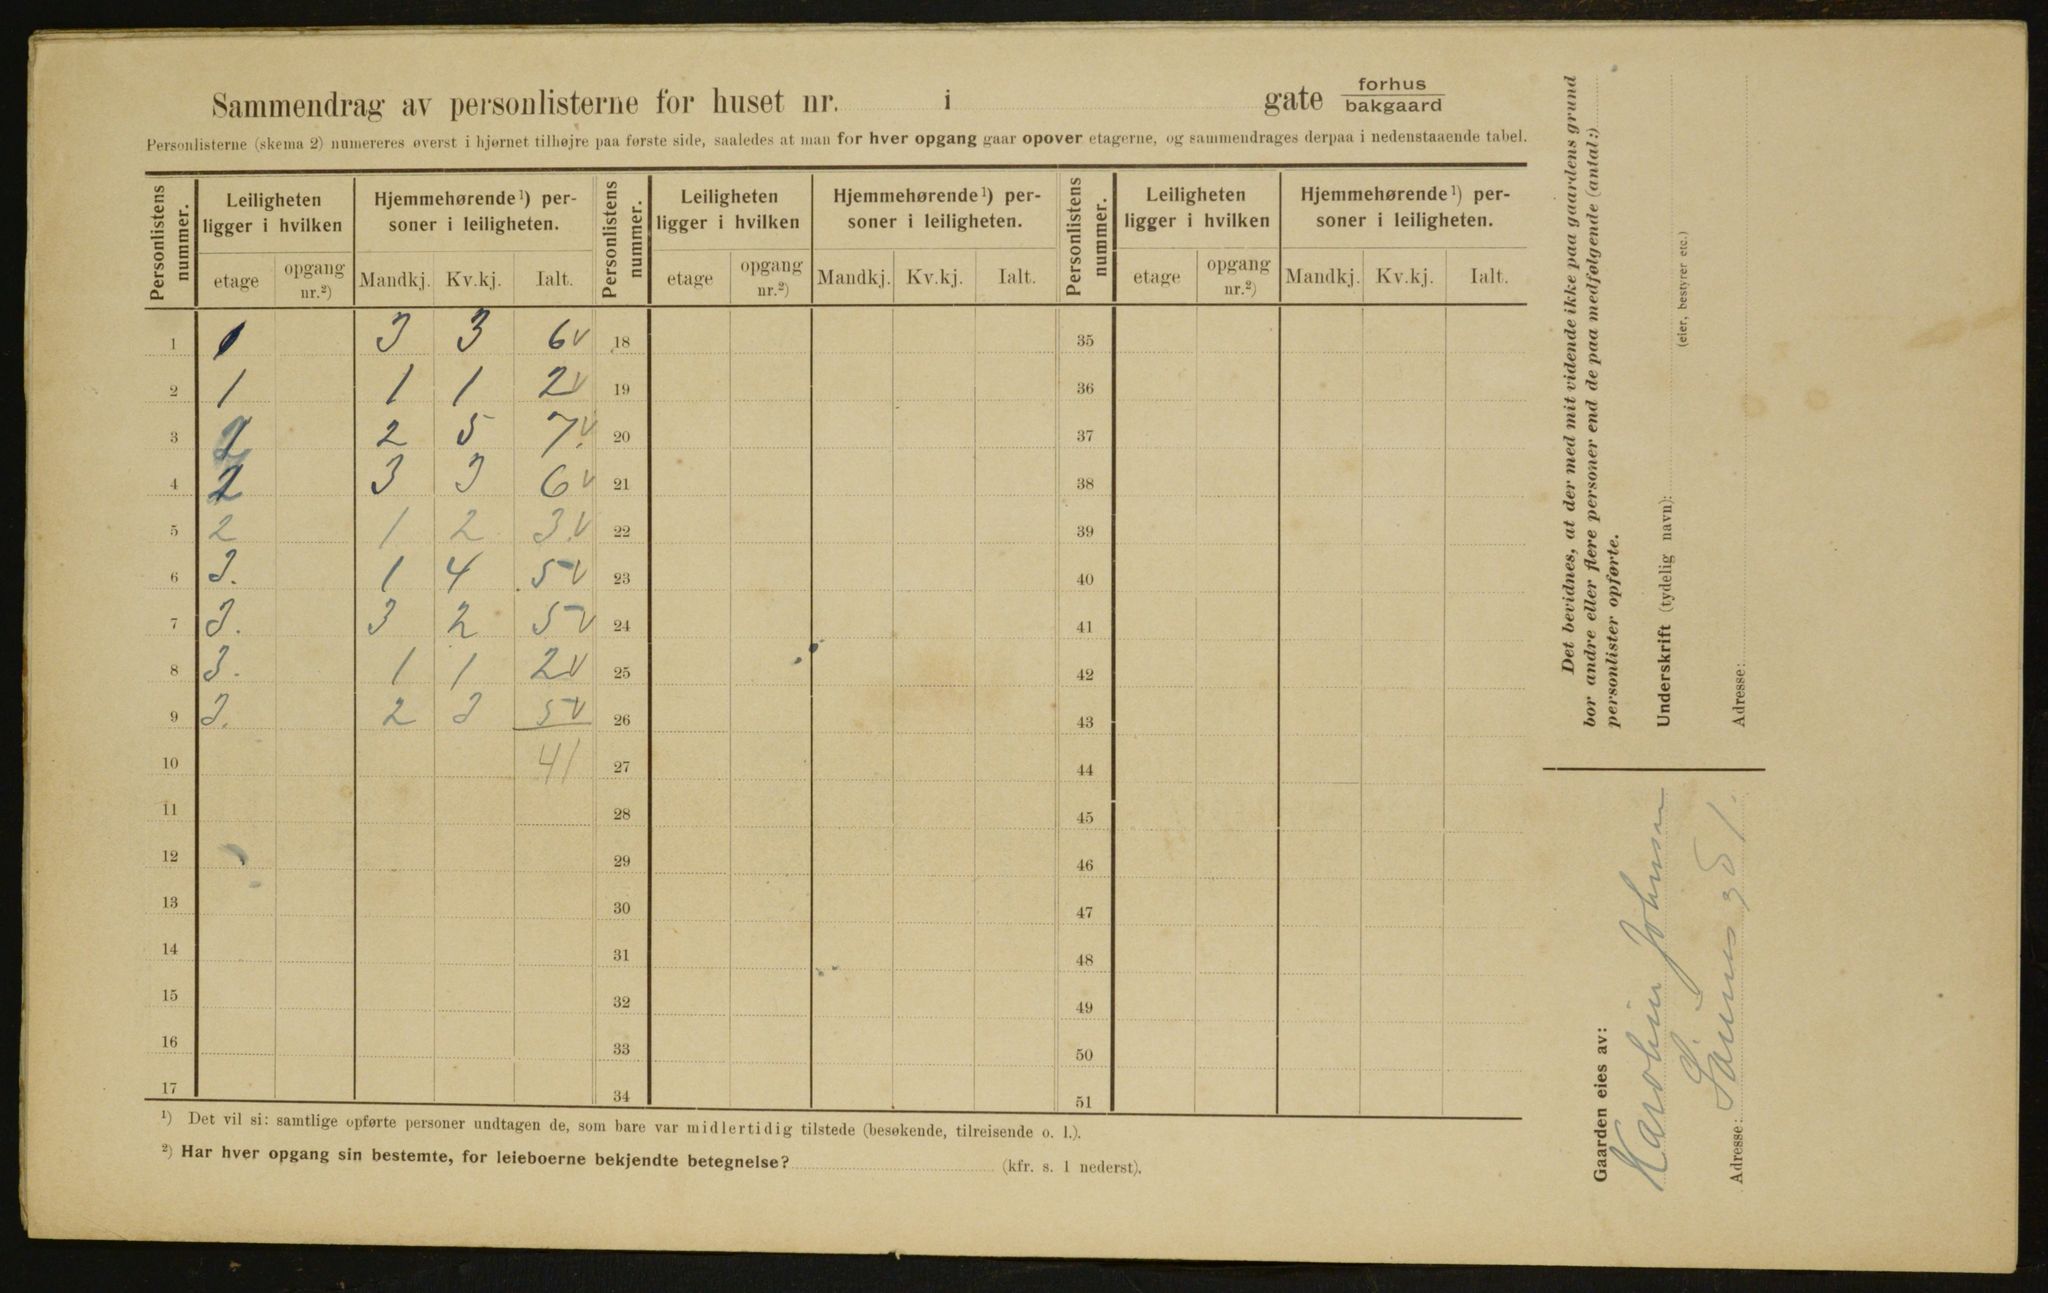 Sammendrag av personlisterne for huset nr. i gate forhus
bakgaard
Personlisterne (skema 2) numereres øverst i hjørnet tilhøjre paa første side, saaledes at man for hver opgang gaar opover etagerne, og sammendrages derpaa i nedenstaaende tabel.
Personlistens nummer. Leiligheten ligger i hvilken Hjemmehørende¹) personer i leiligheten. Personlistens nummer. Leiligheten ligger i hvilken Hjemmehørende¹) personer i leiligheten. Personlistens nummer. Leiligheten ligger i hvilken Hjemmehørende¹) personer i leiligheten.
etage opgang nr.²) Mandkj. Kv.kj. Ialt. etage opgang nr.²) Mandkj. Kv.kj. Ialt. etage opgang nr.²) Mandkj. Kv.kj. Ialt.
1 1 3 3 6 v 18 35
2 1 1 1 2 v 19 36
3 2 2 5 7 v 20 37
4 2 3 3 6 v 21 38
5 2 1 2 3 v 22 39
6 3. 1 4 5 v 23 40
7 3. 3 2 5 v 24 41
8 3. 1 1 2 v 25 42
9 3. 2 3 5 v 26 43
10 41 27 44
11 28 45
12 29 46
13 30 47
14 31 48
15 32 49
16 33 50
17 34 51
¹) Det vil si: samtlige opførte personer undtagen de, som bare var midlertidig tilstede (besøkende, tilreisende o. l.).
²) Har hver opgang sin bestemte, for leieboerne bekjendte betegnelse? (kfr. s. 1 nederst).
Det bevidnes, at der med mit vidende ikke paa gaardens grund
bor andre eller flere personer end de paa medfølgende (antal:)
personlister opførte.
Underskrift (tydelig navn):
(eier, bestyrer etc.)
Adresse:
Gaarden eies av:
Karolin Johnsen
Adresse: